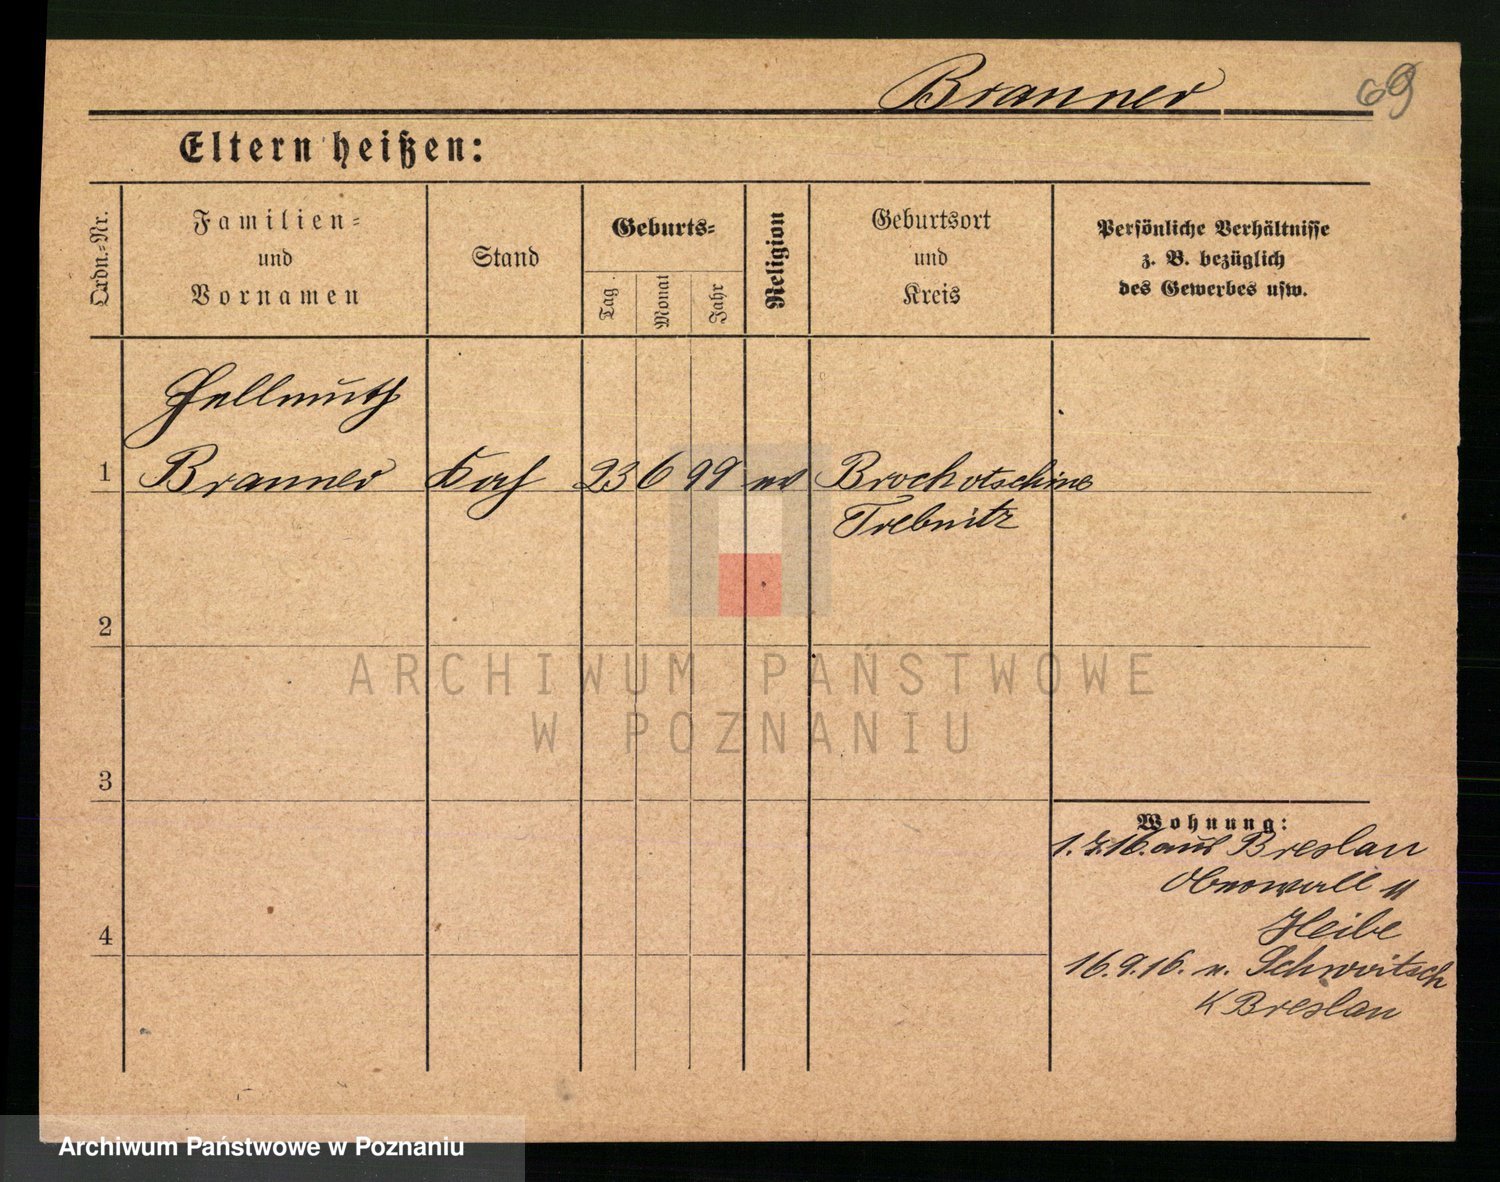 Branner 69
Eltern heißen:
Ordn.=Nr.
Familien=
und
Vornamen
Stand
Geburts=
Tag
Monat
Jahr
Religion
Geburtsort
und
Kreis
Persönliche Verhältnisse
z. B. bezüglich
des Gewerbes usw.
Hellmuth
1 Branner Koch 23 6 99 ev Brochotschine
Trebnitz
2
3
4
Wohnung:
1.7.16. aus Breslau
Oberwall 11
Heibe
16.9.16. n. Schwoitsch
K Breslau
ARCHIWUM PAŃSTWOWE
W POZNANIU
Archiwum Państwowe w Poznaniu